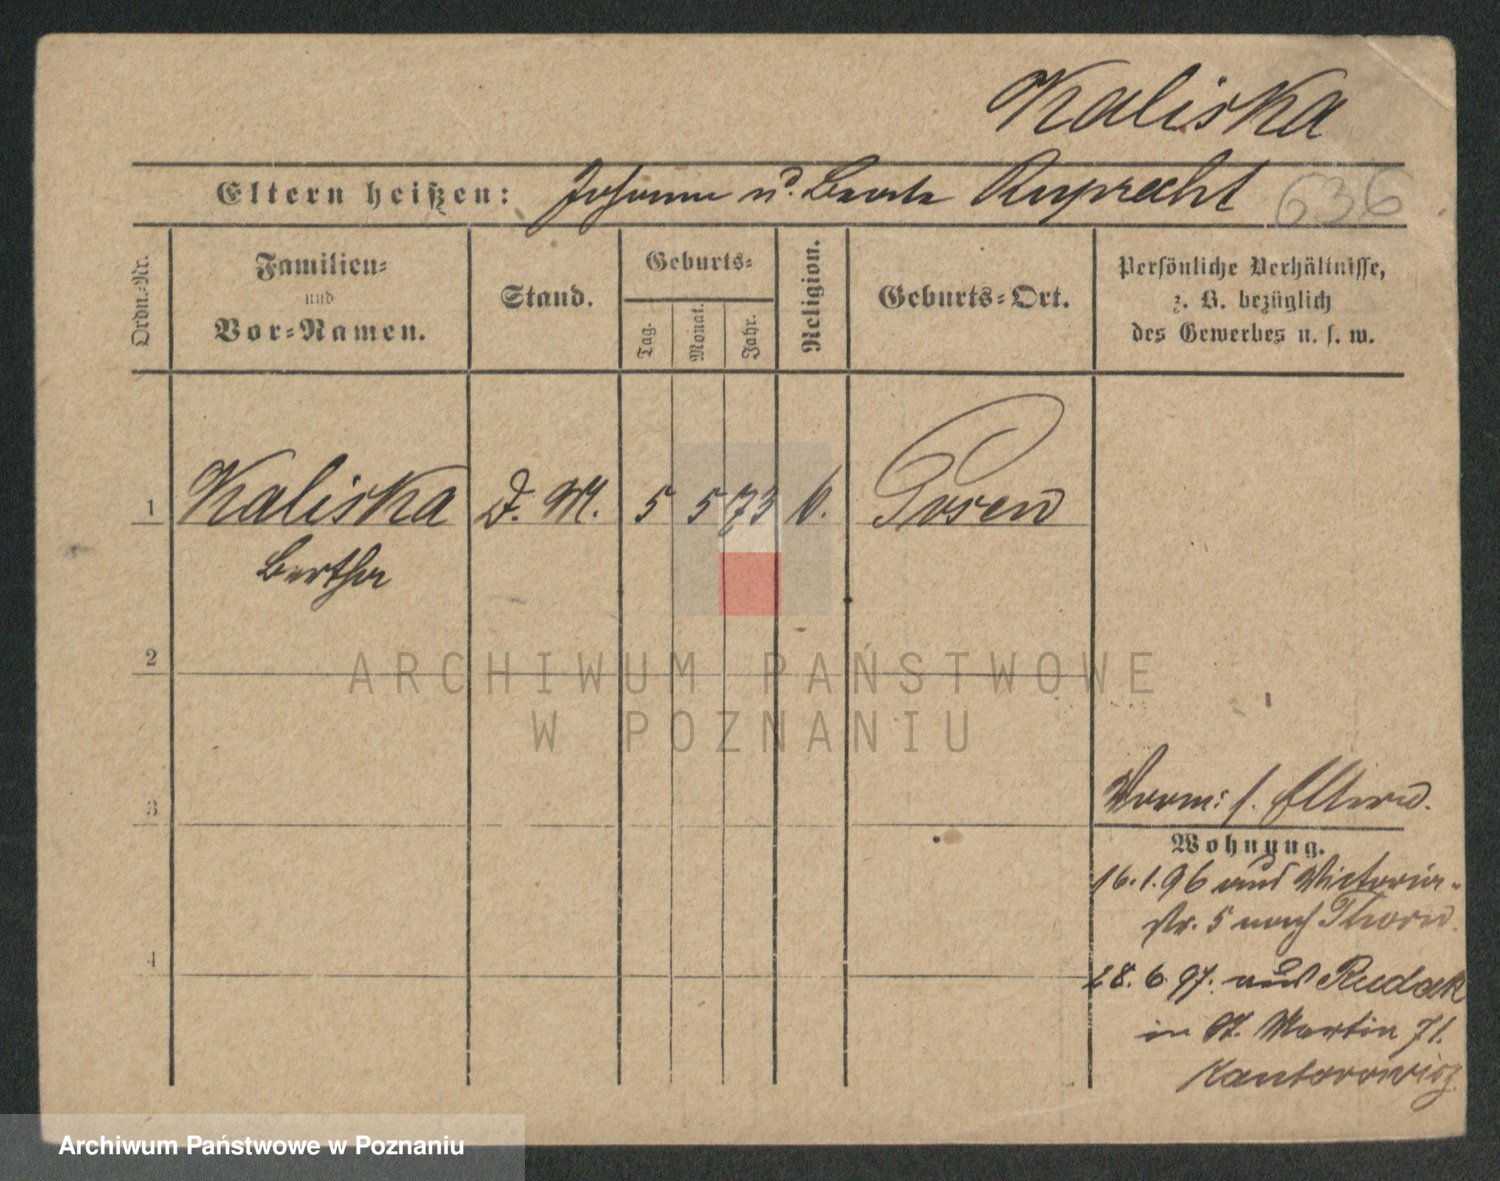 Kaliska
Eltern heißen: Johann u. Beate Ruprecht 636
Ordn.-Nr.
Familien-
und
Vor-Namen.
Stand.
Geburts-
Tag.
Monat.
Jahr.
Religion.
Geburts-Ort.
Persönliche Verhältnisse,
z. B. bezüglich
des Gewerbes u. s. w.
1 Kaliska D. M. 5 5 73 Posen
Bertha
2
ARCHIWUM PAŃSTWOWE
W POZNANIU
3
Vorm: s. Eltern.
Wohnung.
16.1.96 aus Victoria-
str. 5 nach Thorn.
4
28.6.97. aus Rudak
in St. Martin 71.
Kantorowicz
Archiwum Państwowe w Poznaniu